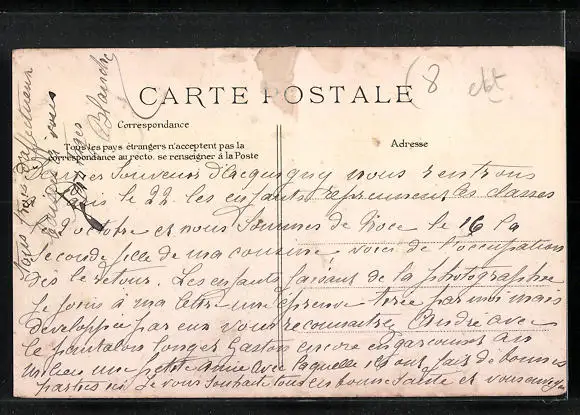 8
CARTE POSTALE
Correspondance
Adresse
Tous les pays étrangers n'acceptent pas la
correspondance au recto. se renseigner à la Poste
Souvenir d'Acquigny nous rentrons
le 22. les enfants reprennent les classes
octobre et nous sommes de Noce le 16 la
seconde fille de ma cousine voici de l'occupation
dès le retour. Les enfants faisant de la photographie
je joins à ma lettre une épreuve tirée par moi mais
développée par eux vous reconnaitrez André avec
le pantalon longet Gaston encore en garçonnet au
milieu une petite amie avec laquelle ils ont fait de bonnes
parties ici Je vous souhaite tous en bonne santé et vous envoyer
Blanche